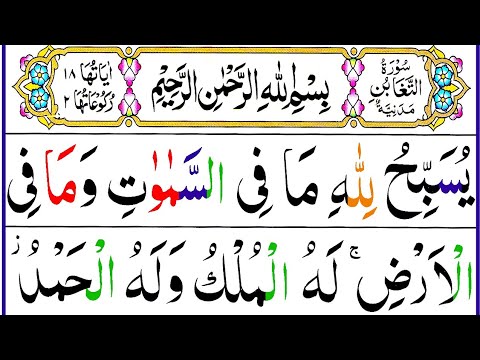 سُورَةُ التَّغَابُنِ مَدَنِيَّةٌ
بِسْمِ اللهِ الرَّحْمٰنِ الرَّحِيْمِ
اٰيَاتُهَا ١٨ رُكُوْعَاتُهَا ٢
يُسَبِّحُ لِلّٰهِ مَا فِى السَّمٰوٰتِ وَمَا فِى
الْاَرْضِ ۚ لَهُ الْمُلْكُ وَلَهُ الْحَمْدُ ؗ